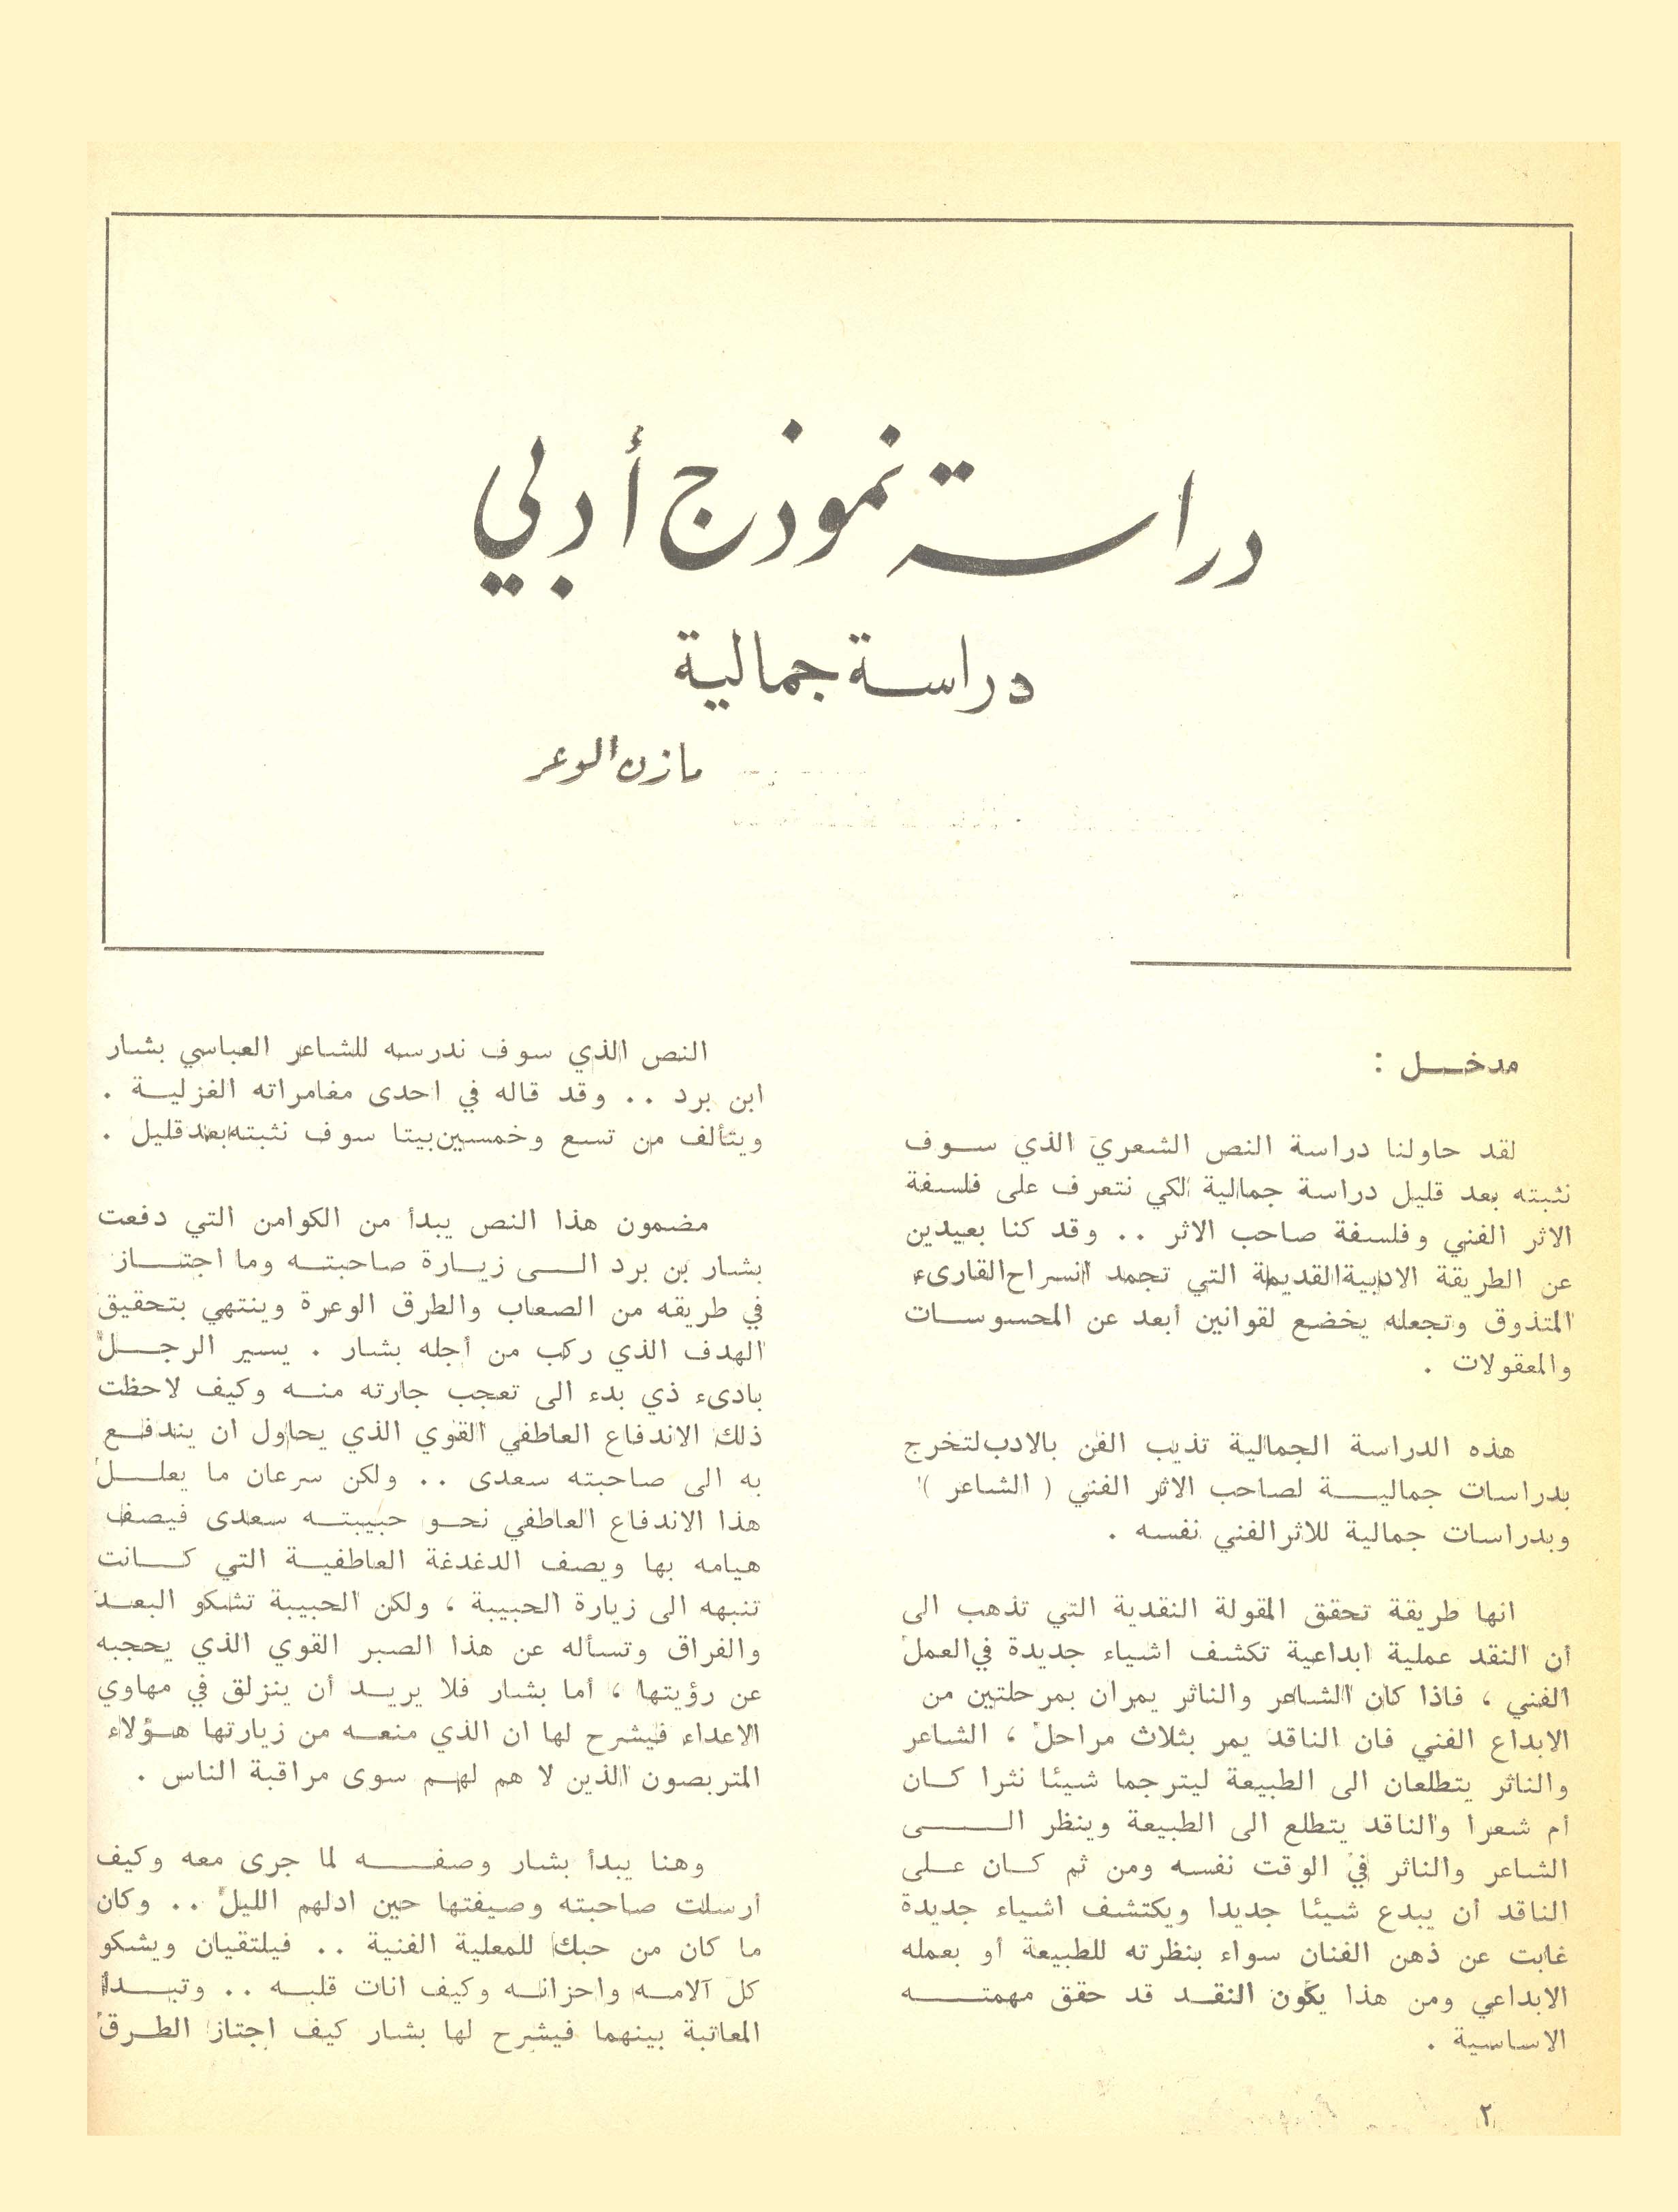 دراسة نموذج أدبي
دراسة جمالية
مازن الوعر
مدخل :
لقد حاولنا دراسة النص الشعري الذي سوف
نثبته بعد قليل دراسة جمالية لكي نتعرف على فلسفة
الاثر الفني وفلسفة صاحب الاثر .. وقد كنا بعيدين
عن الطريقة الادبية القديمة التي تجمد انسراح القارىء
المتذوق وتجعله يخضع لقوانين أبعد عن المحسوسات
والمعقولات .
هذه الدراسة الجمالية تذيب الفن بالادب لتخرج
بدراسات جمالية لصاحب الاثر الفني ( الشاعر )
وبدراسات جمالية للاثر الفني نفسه .
انها طريقة تحقق المقولة النقدية التي تذهب الى
أن النقد عملية ابداعية تكشف اشياء جديدة في العمل
الفني ، فاذا كان الشاعر والناثر يمران بمرحلتين من
الابداع الفني فان الناقد يمر بثلاث مراحل ، الشاعر
والناثر يتطلعان الى الطبيعة ليترجما شيئا نثرا كان
أم شعرا والناقد يتطلع الى الطبيعة وينظر الى
الشاعر والناثر في الوقت نفسه ومن ثم كان على
الناقد أن يبدع شيئا جديدا ويكتشف اشياء جديدة
غابت عن ذهن الفنان سواء بنظرته للطبيعة أو بعمله
الابداعي ومن هذا يكون النقد قد حقق مهمته
الاساسية .
النص الذي سوف ندرسه للشاعر العباسي بشار
ابن برد .. وقد قاله في احدى مغامراته الغزلية .
ويتألف من تسع وخمسين بيتا سوف نثبته بعد قليل .
مضمون هذا النص يبدأ من الكوامن التي دفعت
بشار بن برد الى زيارة صاحبته وما اجتاز
في طريقه من الصعاب والطرق الوعرة وينتهي بتحقيق
الهدف الذي ركب من أجله بشار . يسير الرجل
بادىء ذي بدء الى تعجب جارته منه وكيف لاحظت
ذلك الاندفاع العاطفي القوي الذي يحاول ان يندفع
به الى صاحبته سعدى .. ولكن سرعان ما يعلل
هذا الاندفاع العاطفي نحو حبيبته سعدى فيصف
هيامه بها ويصف الدغدغة العاطفية التي كانت
تنبهه الى زيارة الحبيبة ، ولكن الحبيبة تشكو البعد
والفراق وتسأله عن هذا الصبر القوي الذي يحجبه
عن رؤيتها ، أما بشار فلا يريد أن ينزلق في مهاوي
الاعداء فيشرح لها ان الذي منعه من زيارتها هؤلاء
المتربصون الذين لا هم لهم سوى مراقبة الناس .
وهنا يبدأ بشار وصفه لما جرى معه وكيف
أرسلت صاحبته وصيفتها حين ادلهم الليل .. وكان
ما كان من حبك للمعلية الفنية .. فيلتقيان ويشكو
كل آلامه واحزانه وكيف انات قلبه .. وتبدأ
المعاتبة بينهما فيشرح لها بشار كيف اجتاز الطرق
٢